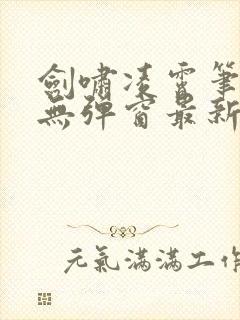 劍嘯凌霄筆
無彈窗最新
元氣滿滿工作